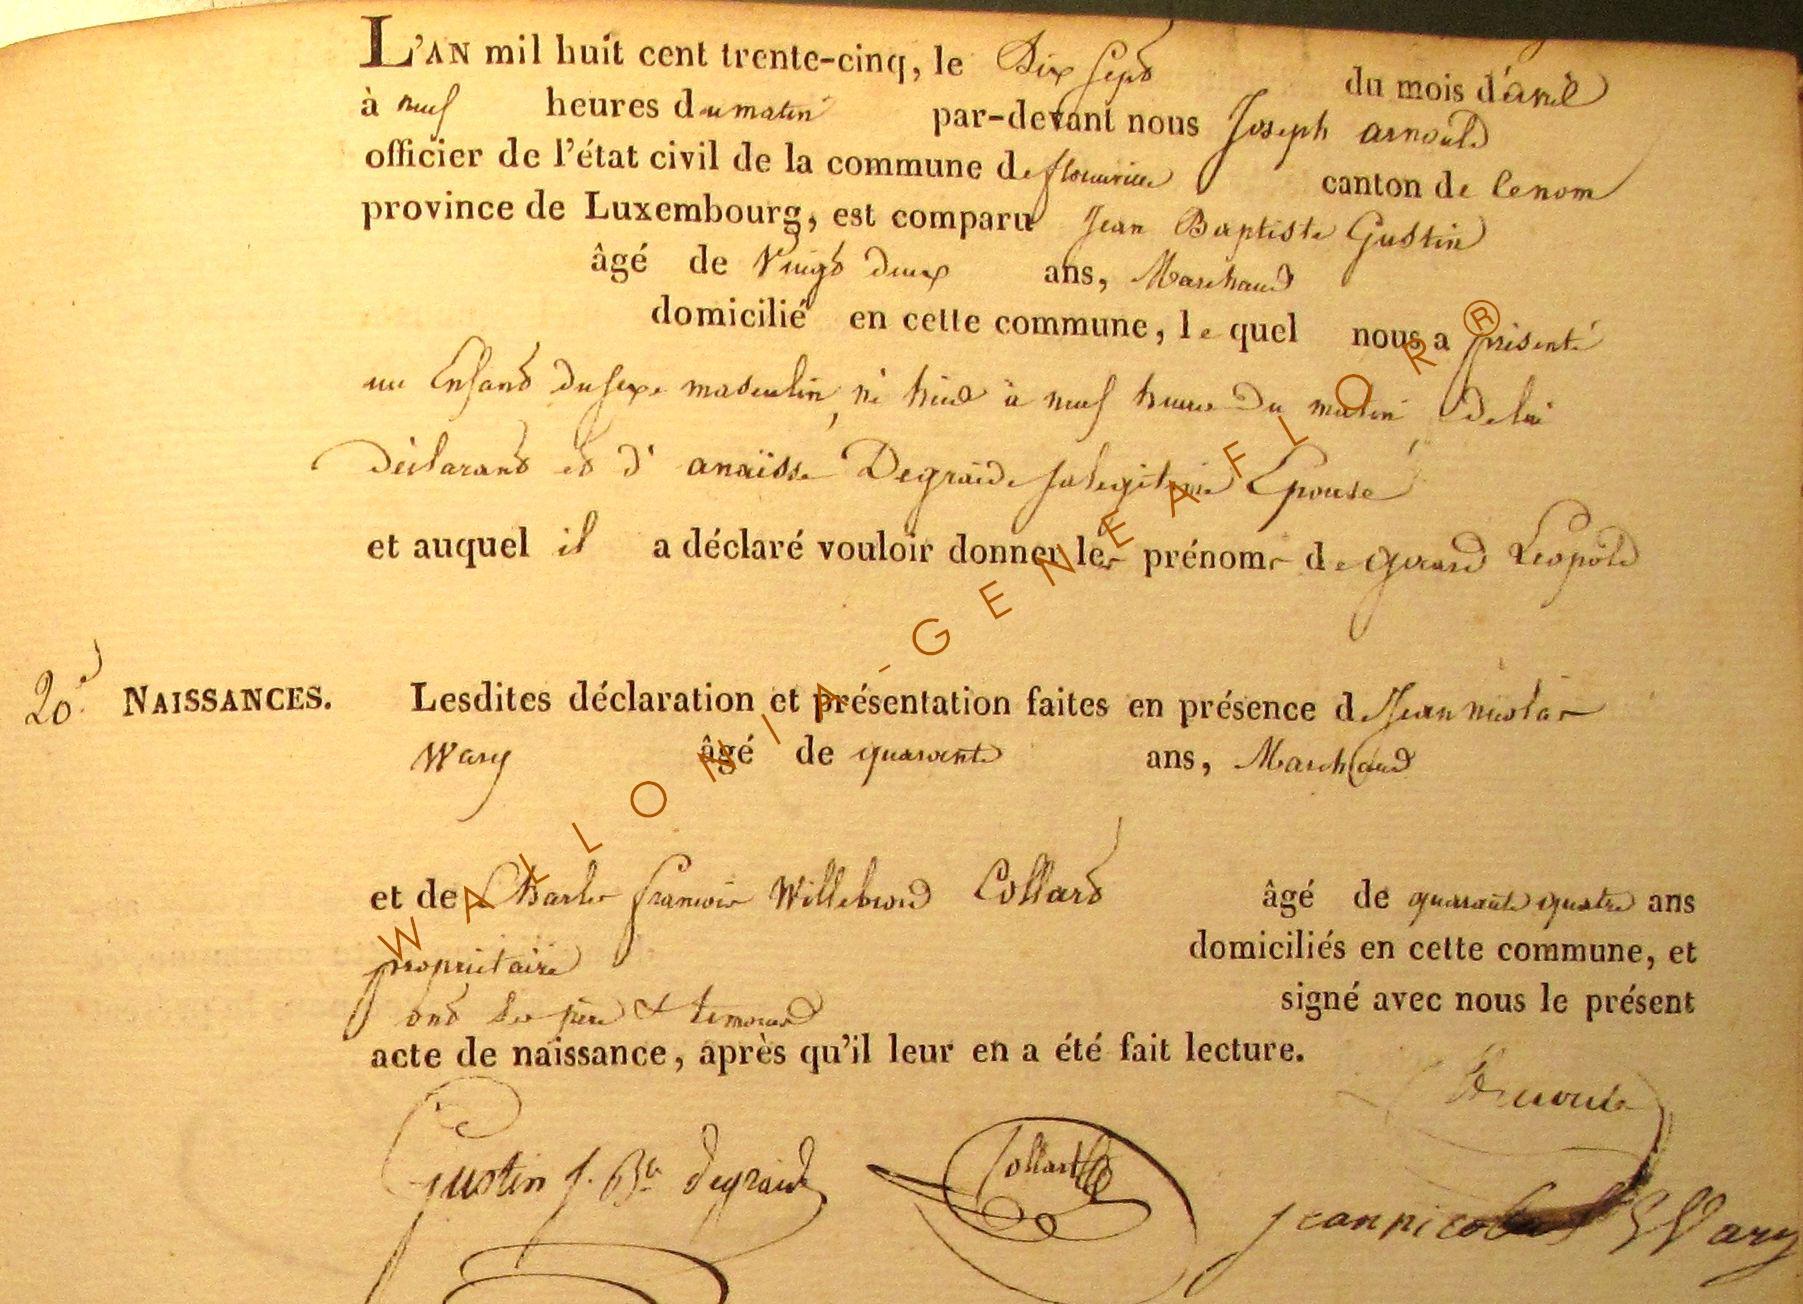 L'AN mil huit cent trente-cinq, le Dix sept du mois d'avril
à neuf heures du matin par-devant nous Joseph arnould
officier de l'état civil de la commune de florenville canton de
province de Luxembourg, est comparu Jean Baptiste Gustin
âgé de Vingt deux ans, Marchand
domicilié en cette commune, le quel nous a présenté
un Enfant du sexe masculin, né hier à neuf heures du matin de lui
déclarant et d' anaïsse Degraide sa legitime Epouse
et auquel il a déclaré vouloir donner les prénoms de gerard Leopold
20e NAISSANCES. Lesdites déclaration et présentation faites en présence de Jean nicolas
Wary âgé de quarante ans, Marchand
et de Charles francois Willebrord Collard âgé de quarante quatre ans
propriétaire domiciliés en cette commune, et
ont les père et temoins signé avec nous le présent
acte de naissance, après qu'il leur en a été fait lecture.
Arnould
gustin J. Bte degraide Collard jean nicolas Wary
WALLONIA-GENEAFLOR®